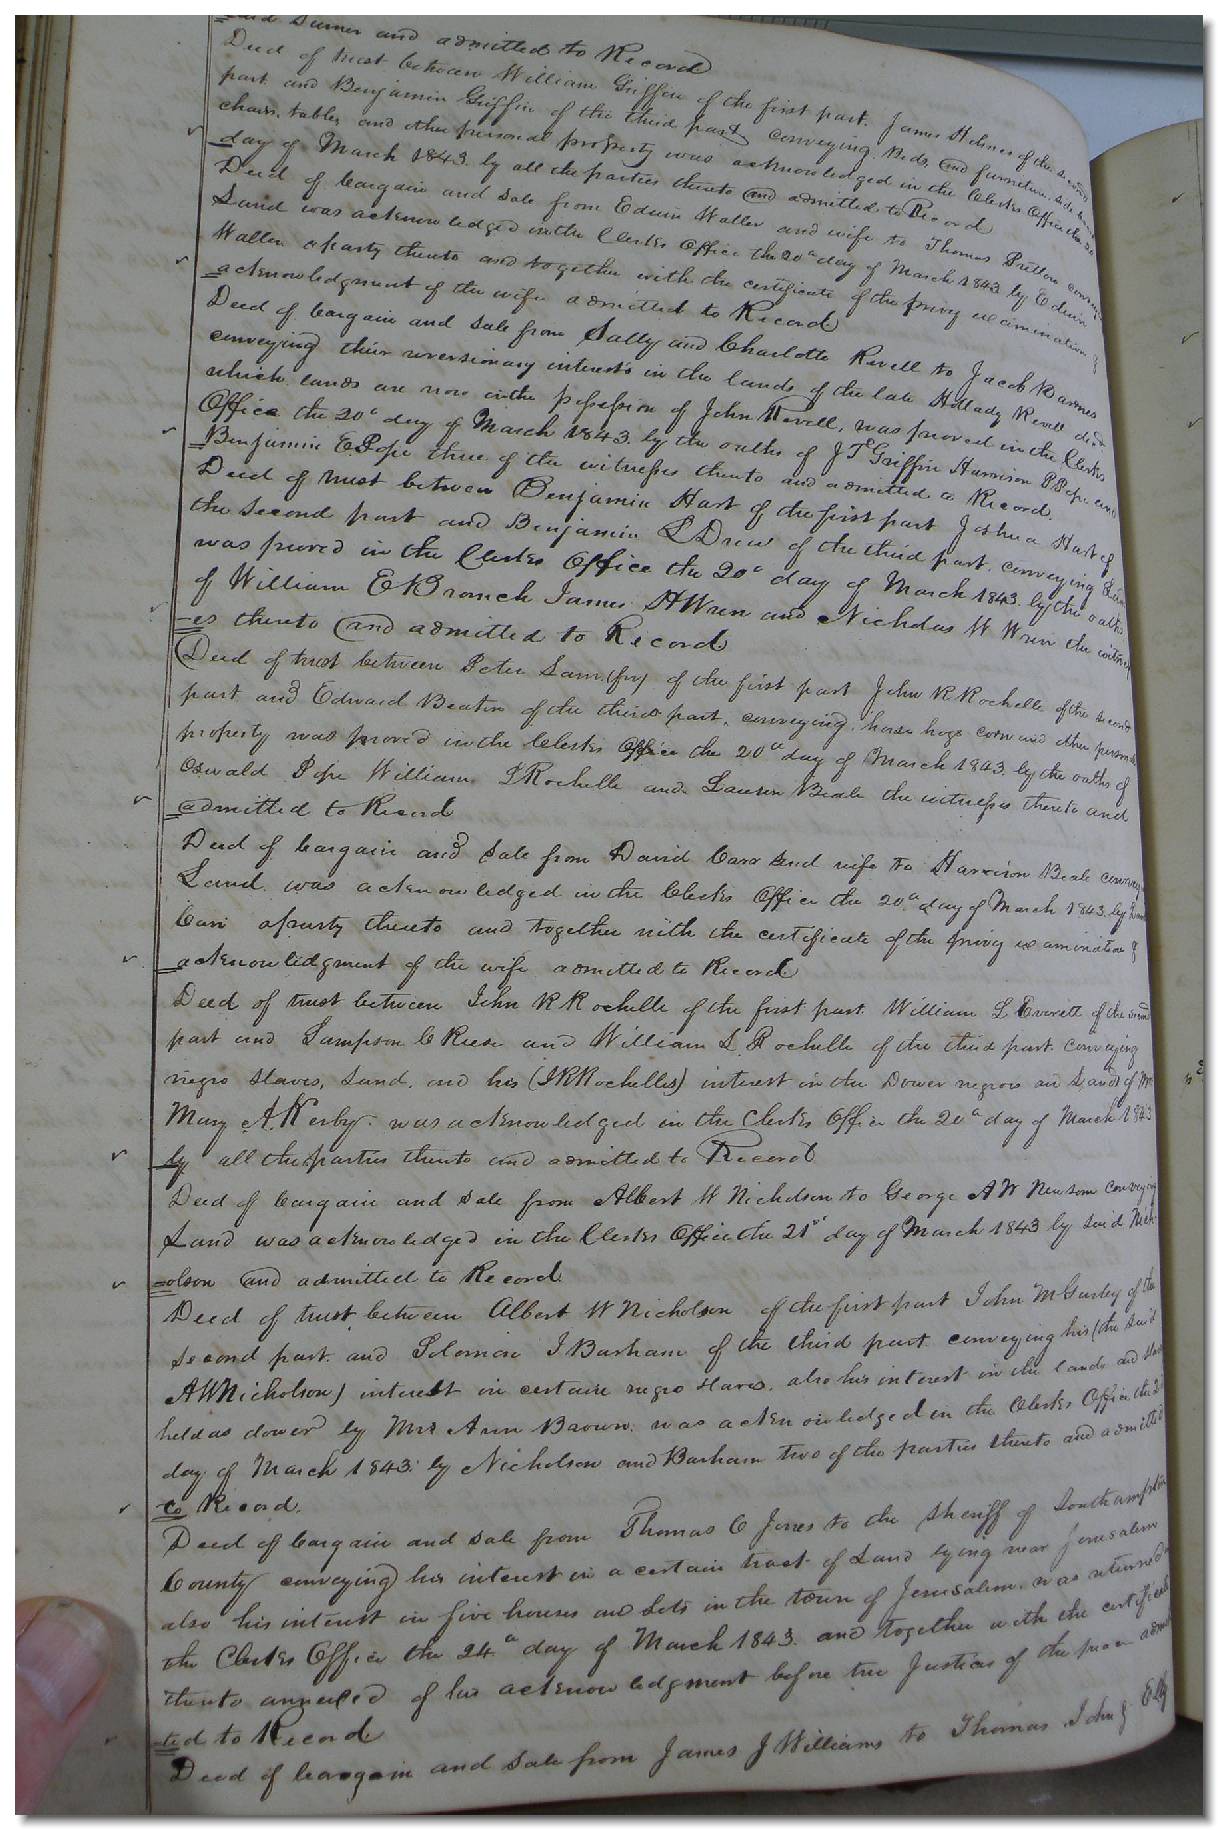 said Turner and admitted to Record
Deed of trust between William Griffin of the first part. James Holmes of the second
part and Benjamin Griffin of the third part conveying Beds, and furniture, side
chairs, tables and other personal property was acknowledged in the Clerks Office the 20
day of March 1843. by all the parties thereto and admitted to Record
Deed of bargain and sale from Edwin Waller and wife to Thomas Pretlow conveying
Land was acknowledged in the Clerks Office the 20th day of March 1843 by Edwin
Waller a party thereto and together with the certificate of the privy examination &
acknowledgment of the wife admitted to Record
Deed of bargain and sale from Sally and Charlotte Revell to Jacob Barnes
conveying their reversionary interests in the lands of the late Holladay Revell decd
which lands are now in the possession of John Revell, was proved in the Clerks
Office the 20th day of March 1843. by the oaths of J T Griffin Harrison P Pope and
Benjamin E Pope three of the witnesses thereto and admitted to Record.
Deed of trust between Benjamin Hart of the first part Joshua Hart of
the second part and Benjamin L Drew of the third part. conveying Land
was proved in the Clerks Office the 20th day of March 1843. by the oaths
of William E N Branch James H Wren and Nicholas W Wren the witness
-es thereto and admitted to Record
Deed of trust between Peter Sam (fn) of the first part John R Rochelle of the second
part and Edward Beaton of the third part, conveying horse hogs corn and other personal
property was proved in the Clerks Office the 20th day of March 1843. by the oaths of
Oswald Pope William L Rochelle and Lawson Beale the witnesses thereto and
admitted to Record
Deed of bargain and sale from David Carr and wife to Harrison Beale conveying
Land. was acknowledged in the Clerks Office the 20th day of March 1843. by David
Carr a party thereto and together with the certificate of the privy examination &
acknowledgment of the wife admitted to Record
Deed of trust between John R Rochelle of the first part William L Everitt of the second
part and Sampson C Reese and William L Rochelle of the third part conveying
negro slaves, Land, and his (J R Rochelles) interest in the Dower negroes and Lands of Mrs
Mary A. Kerby. was acknowledged in the Clerks Office the 20th day of March 1843
by all the parties thereto and admitted to Record
Deed of bargain and sale from Albert W Nicholson to George A W Newsom conveying
Land was acknowledged in the Clerks Office the 21st day of March 1843 by said Nich-
=olson and admitted to Record
Deed of trust between Albert W Nicholson of the first part John McGurley of the
second part. and Solomon J Barham of the third part conveying his (the said
A W Nicholson) interest in certain negro slaves. also his interest in the lands and slaves
held as dower by Mrs Ann Brown. was acknowledged in the Clerks Office the 21
day of March 1843. by Nicholson and Barham two of the parties thereto and admitted
to Record.
Deed of bargain and sale from Thomas C Jones to the sheriff of Southampton
County conveying his interest in a certain tract of Land lying near Jerusalem
also his interest in five houses and Lots in the town of Jerusalem. was returned to
the Clerks Office the 24th day of March 1843. and together with the certificate
thereto annexed of his acknowledgment before two Justices of the peace admit
=ted to Record
Deed of bargain and sale from James J Williams to Thomas John &